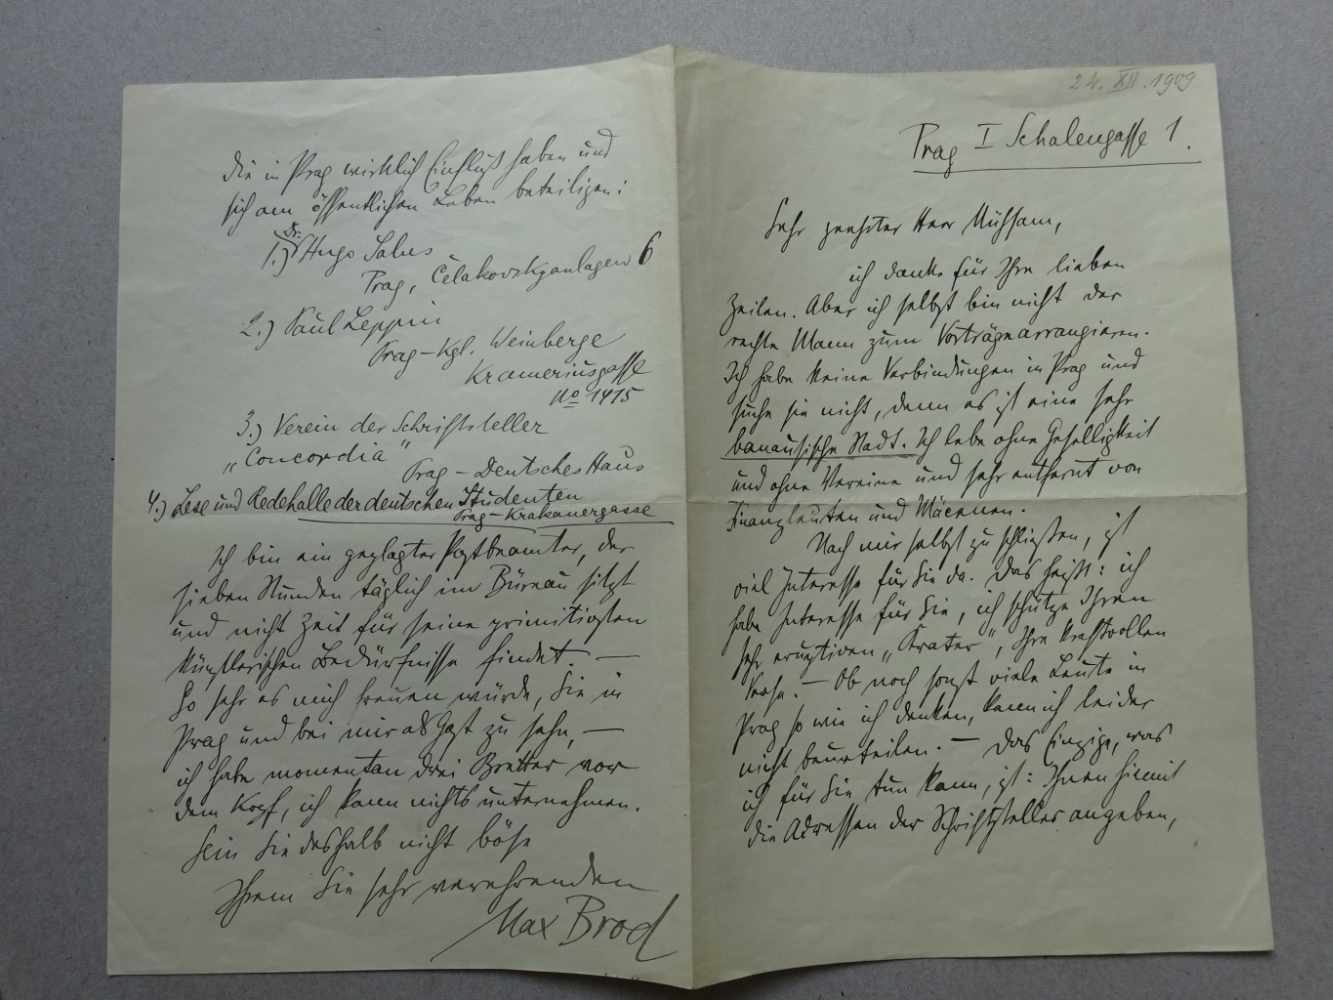 24. XII. 1909
Prag I Schalengasse 1.
Sehr geehrter Herr Mühsam,
ich danke für Ihre lieben
Zeilen. Aber ich selbst bin nicht der
rechte Mann zum Vorträgearrangieren.
Ich habe keine Verbindungen in Prag und
suche sie nicht, denn es ist eine sehr
banausische Stadt. Ich lebe ohne Geselligkeit
und ohne Vereine und sehr entfernt von
Finanzleuten und Mäcenen.
Nach mir selbst zu schließen, ist
viel Interesse für Sie da. Das heißt: ich
habe Interesse für Sie, ich schätze Ihren
sehr eruptiven „Krater“, Ihre kraftvollen
Verse. — Ob noch sonst viele Leute in
Prag so wie ich denken, kann ich leider
nicht beurteilen. — Das Einzige, was
ich für Sie tun kann, ist: Ihnen hiemit
die Adressen der Schriftsteller angeben,
die in Prag wirklich Einfluß haben und
sich am öffentlichen Leben beteiligen:
1.) Dr. Hugo Salus
Prag, Čelakovskyanlagen 6
2.) Paul Leppin
Prag-Kgl. Weinberge
Krameriusgasse
No 1415
3.) Verein der Schriftsteller
„Concordia“
Prag – Deutsches Haus
4.) Lese und Redehalle der deutschen Studenten
Prag – Krakauergasse
Ich bin ein geplagter Postbeamter, der
sieben Stunden täglich im Büreau sitzt
und nicht Zeit für seine primitivsten
künstlerischen Bedürfnisse findet. —
So sehr es mich freuen würde, Sie in
Prag und bei mir als Gast zu sehn, —
ich habe momentan drei Bretter vor
dem Kopf, ich kann nichts unternehmen.
Sein Sie deshalb nicht böse
Ihrem Sie sehr verehrenden
Max Brod